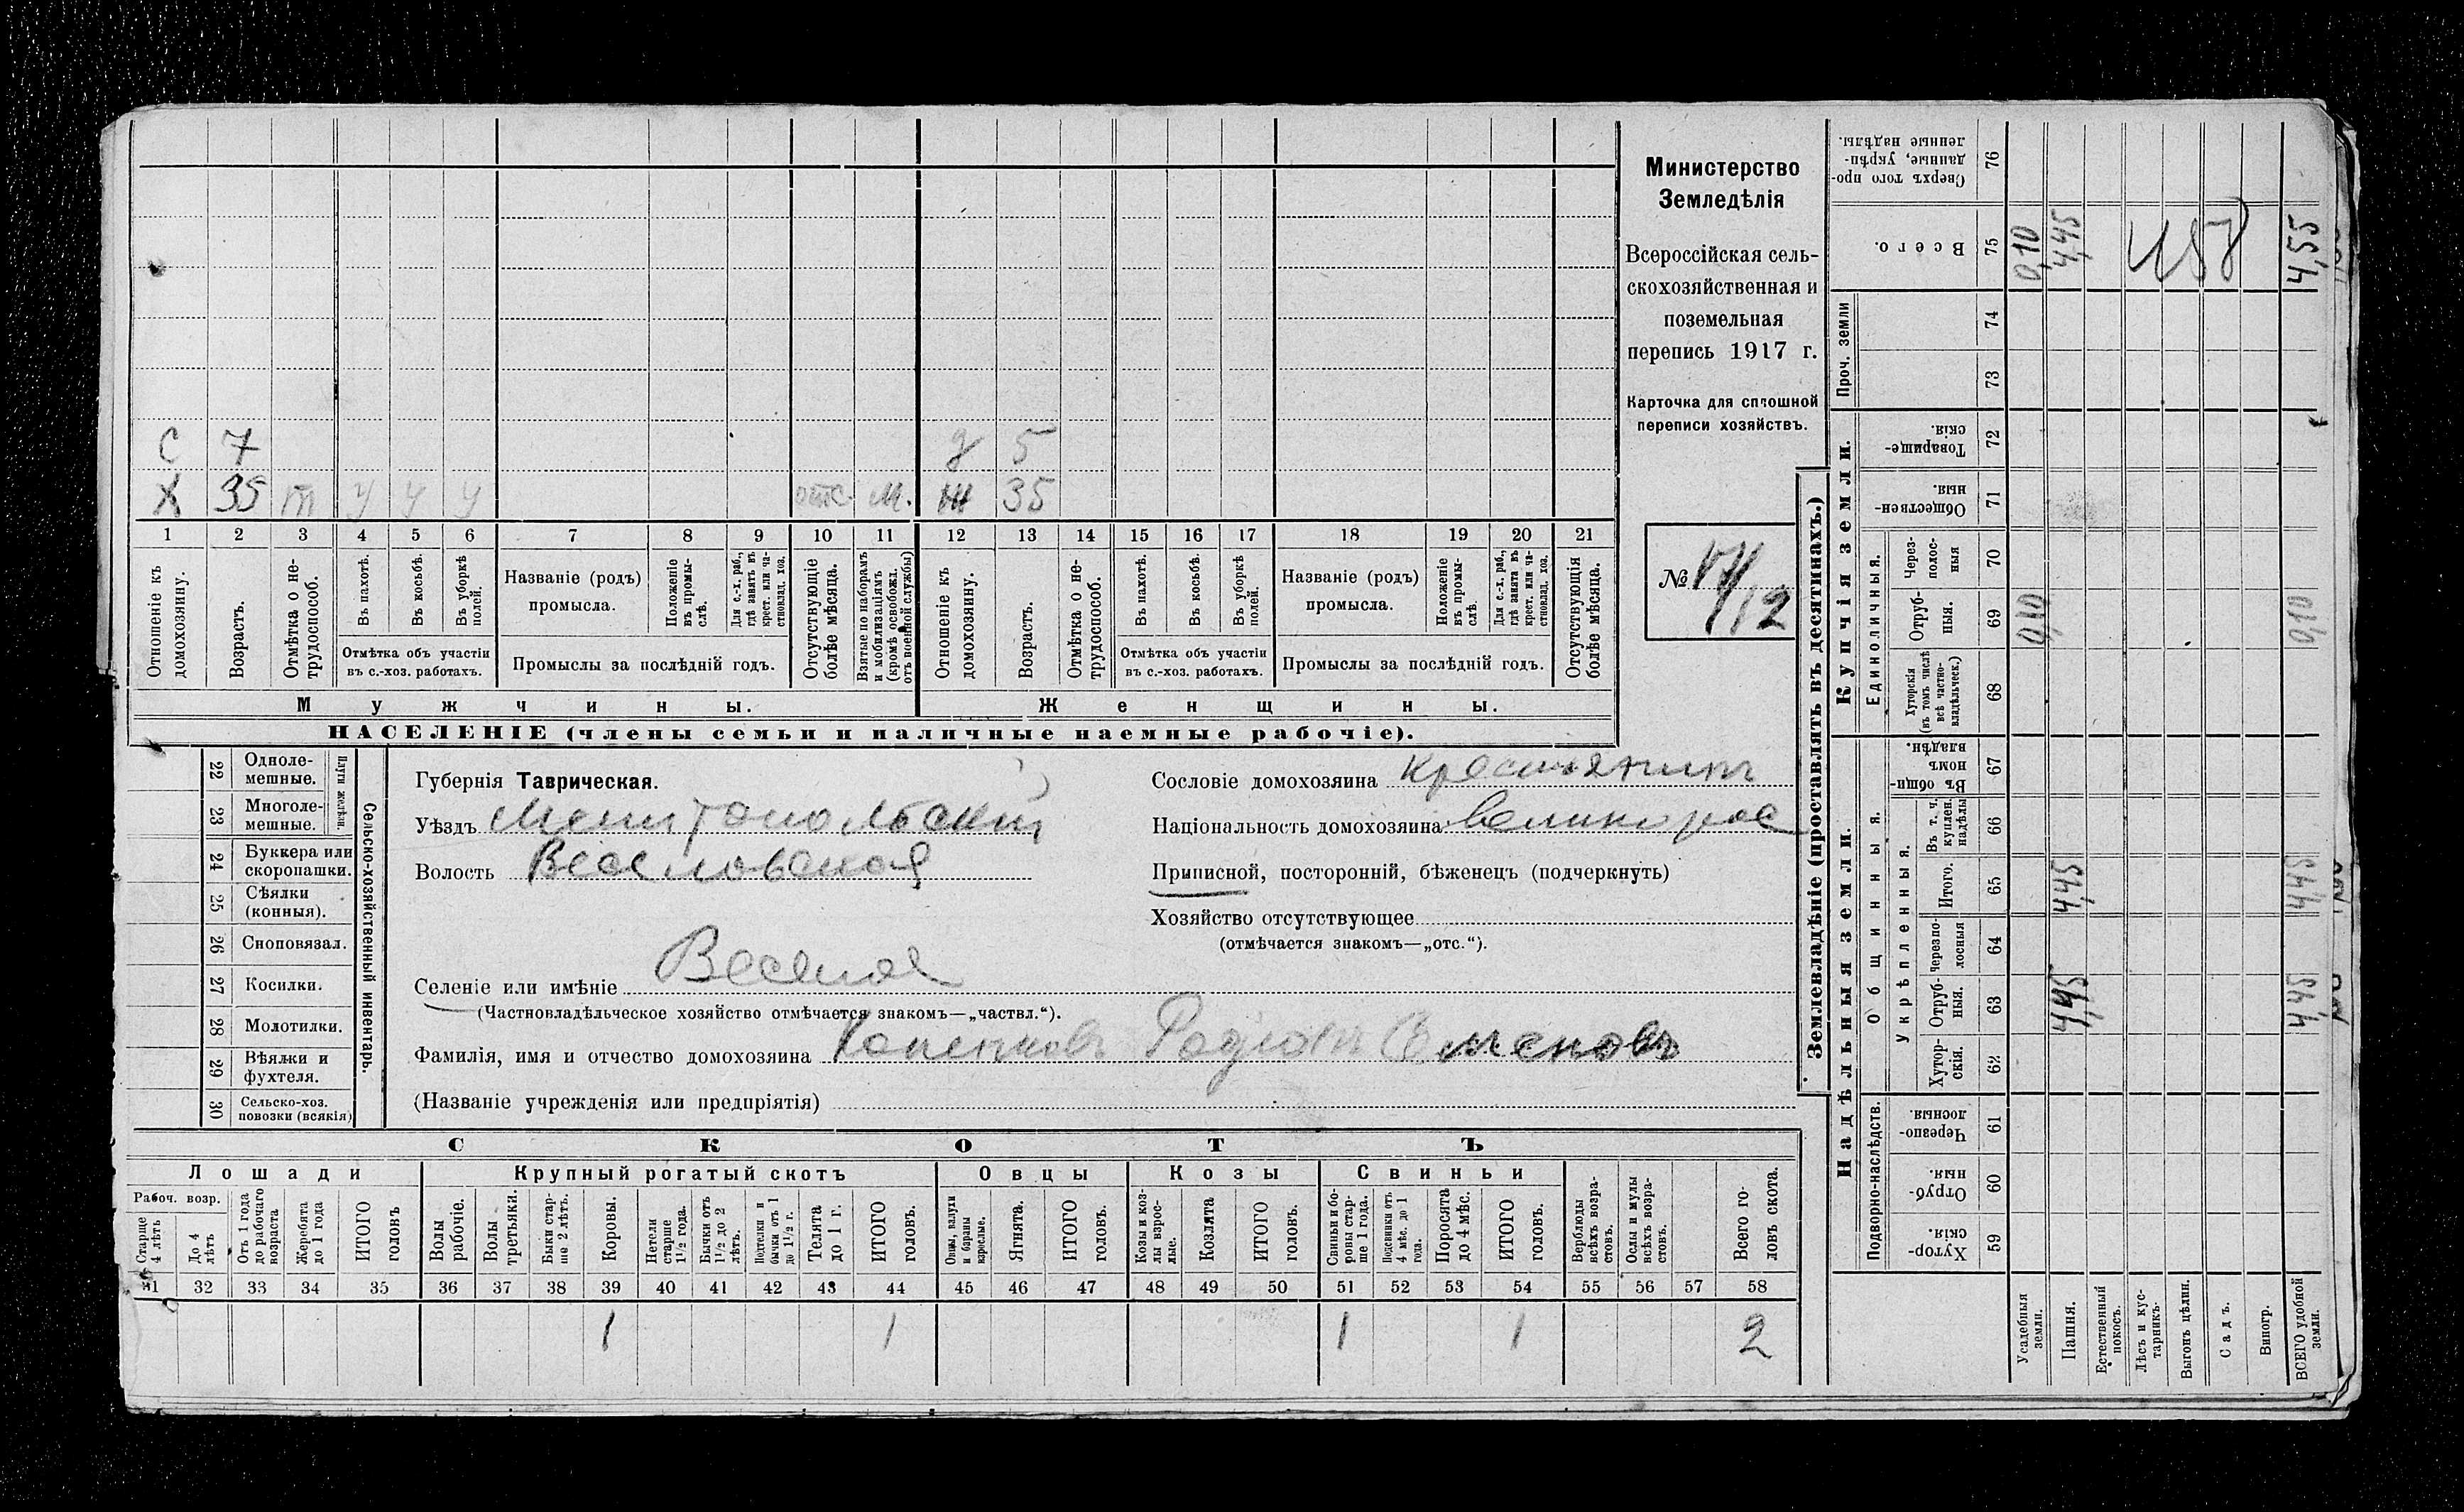 Министерство
Земледѣлія
Всероссійская сель-
скохозяйственная и
поземельная
перепись 1917 г.
Карточка для сплошной
переписи хозяйствъ.
№
12
С 7 д 5
Х 35 т у у у отс. м. ж 35
1 2 3 4 5 6 7 8 9 10 11 12 13 14 15 16 17 18 19 20 21
Отношеніе къ домохозяину.
Возрастъ.
Отмѣтка о не-трудоспособ.
Въ пахотѣ.
Въ косьбѣ.
Въ уборкѣ полей.
Отмѣтка объ участіи
въ с.-хоз. работахъ.
Названіе (родъ)
промысла.
Положеніе въ промы-слѣ.
Для с.-х. раб., гдѣ занятъ въ крест. или ча-стновлад. хоз.
Промыслы за послѣдній годъ.
Отсутствующіе болѣе мѣсяца.
Взятые по наборамъ и мобилизаціямъ (кромѣ освобожд. отъ военной службы)
Отношеніе къ домохозяину.
Возрастъ.
Отмѣтка о не-трудоспособ.
Въ пахотѣ.
Въ косьбѣ.
Въ уборкѣ полей.
Отмѣтка объ участіи
въ с.-хоз. работахъ.
Названіе (родъ)
промысла.
Положеніе въ промы-слѣ.
Для с.-х. раб., гдѣ занята въ крест. или ча-стновлад. хоз.
Промыслы за послѣдній годъ.
Отсутствующія болѣе мѣсяца.
Мужчины. Женщины.
НАСЕЛЕНІЕ (члены семьи и наличные наемные рабочіе).
22 Одноле-мешные.
23 Многоле-мешные.
Плуги желѣзн.
24 Буккера или скоропашки.
25 Сѣялки (конныя).
26 Сноповязал.
27 Косилки.
28 Молотилки.
29 Вѣялки и фухтеля.
30 Сельско-хоз. повозки (всякія)
Сельско-хозяйственный инвентарь.
Губернія Таврическая.
Уѣздъ Мелитопольскій
Волость Веселовская
Селеніе или имѣніе Веселое
(Частновладѣльческое хозяйство отмѣчается знакомъ—„частвл.“).
Фамилія, имя и отчество домохозяина Родіонъ Семеновъ
(Названіе учрежденія или предпріятія)
Сословіе домохозяина крестьянинъ
Національность домохозяина великорос
Приписной, посторонній, бѣженецъ (подчеркнуть)
Хозяйство отсутствующее
(отмѣчается знакомъ—„отс.“).
СКОТЪ
Лошади Крупный рогатый скотъ Овцы Козы Свиньи
Рабоч. возр.
Старше 4 лѣтъ
До 4 лѣтъ
Отъ 1 года до рабочаго возраста
Жеребята до 1 года
ИТОГО головъ
Волы рабочіе.
Волы третьяки.
Быки стар-ше 2 лѣтъ.
Коровы.
Нетели старше 1½ года.
Бычки отъ 1½ до 2 лѣтъ.
Подтелки и бычки отъ 1 до 1½ г.
Телята до 1 г.
ИТОГО головъ.
Овцы, валухи и бараны взрослые.
Ягнята.
ИТОГО головъ.
Козы и коз-лы взрос-лые.
Козлята
ИТОГО головъ.
Свиньи и бо-ровы стар-ше 1 года.
Подсвинки отъ 4 мѣс. до 1 года.
Поросята до 4 мѣс.
ИТОГО головъ.
Верблюды всѣхъ возра-стовъ.
Ослы и мулы всѣхъ возра-стовъ.
Всего го-ловъ скота.
31 32 33 34 35 36 37 38 39 40 41 42 43 44 45 46 47 48 49 50 51 52 53 54 55 56 57 58
1 1 1 1 2
Землевладѣніе (проставлять въ десятинахъ.)
Надѣльныя земли. Купчія земли. Проч. земли
Подворно-наслѣдств. Общинныя. Укрѣпленныя. Единоличныя.
Хутор-скія. 59
Отруб-ныя. 60
Черезпо-лосныя. 61
Хутор-скія. 62
Отруб-ныя. 63
Черезпо-лосныя 64
Итого. 65
Въ т. ч. куплен. надѣлы 66
Въ общи-номъ владѣн. 67
Хуторскія (въ томъ числѣ всѣ частно-владѣльческ.) 68
Отруб-ныя. 69
Через-полос-ныя 70
Обществен-ныя. 71
Товарище-скія. 72
73
74
Всего. 75
Сверхъ того про-данные, укрѣп-ленные надѣлы. 76
Усадебныя земли. 0,10 0,10
Пашня. 4,45 4,45 4,45
Естественный покосъ.
Лѣсъ и кус-тарникъ.
Выгонъ цѣлин.
Садъ.
Виногр.
ВСЕГО удобной земли. 4,45 4,45 0,10 4,55